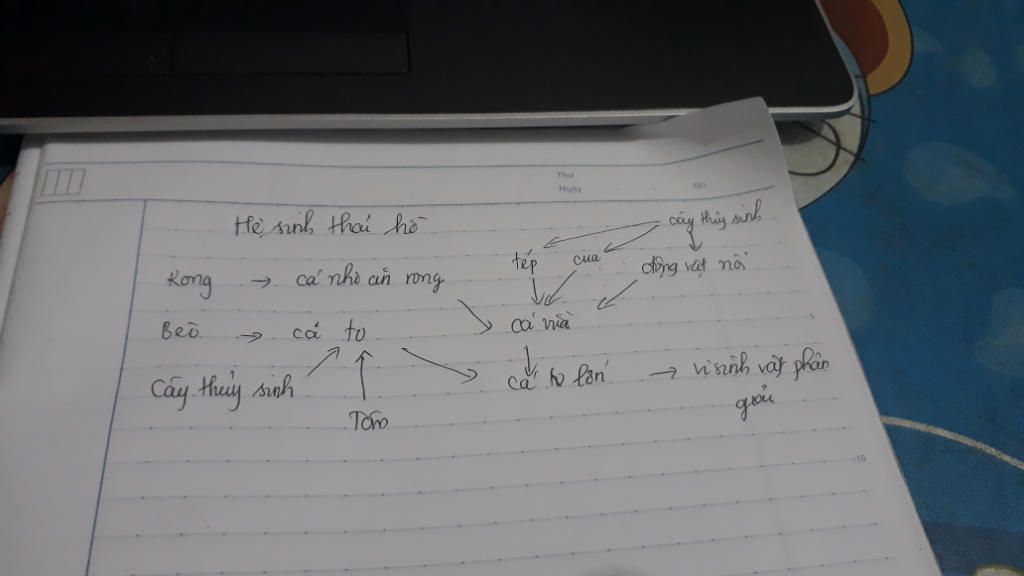 Thứ
Ngày No.
Hệ sinh thái hồ
cây thủy sinh
tép cua động vật nổi
Rong → cá nhỏ ăn rong
Bèo → cá to
cá vừa
Cây thủy sinh
cá to lớn → vi sinh vật phân
giải
Tôm
5
10